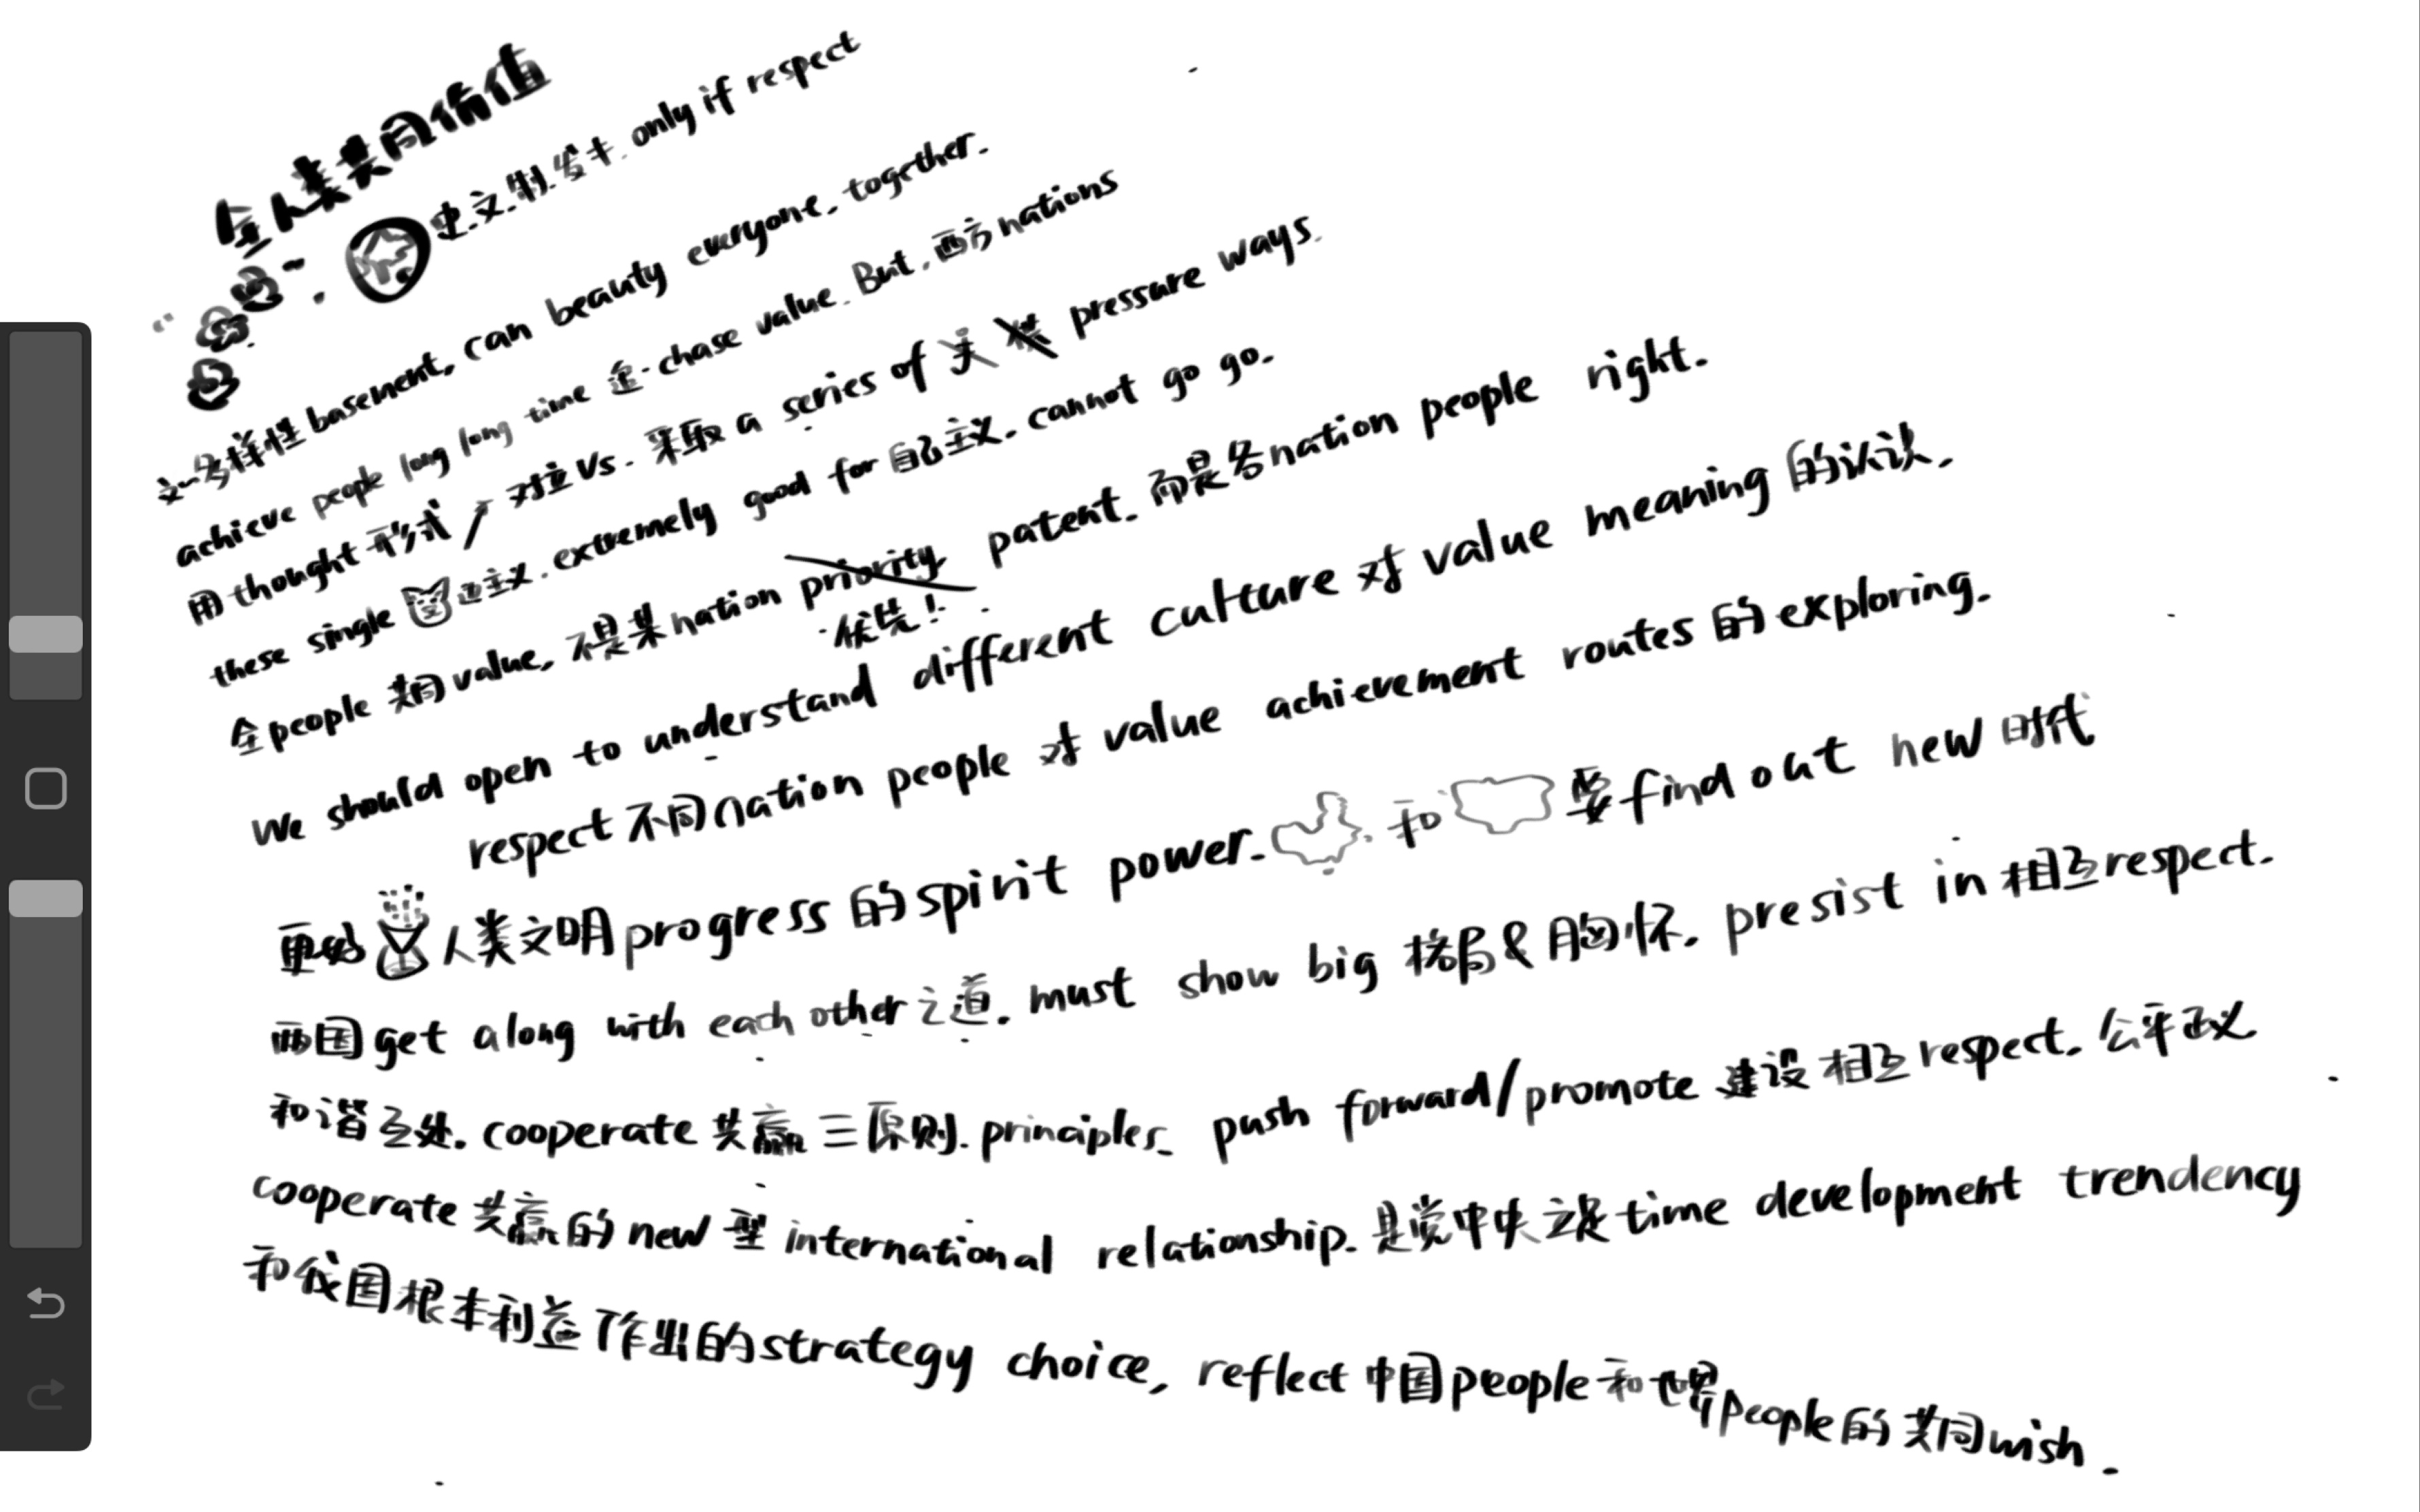 全人类共同价值
史文制 only if respect
文 多样性 basement, can beauty everyone. together.
achieve people long long time 追 chase value. But. 西方 nations
用 thought 形式 / 对立 vs. 采取 a series of pressure ways.
these single 主义. extremely good for 自己主义. cannot go go.
全people 共同 value, 不是某 nation priority patent. 而是各 nation people right.
优先!
we should open to understand different culture 对 value meaning 的认识.
respect 不同 nation people 对 value achievement routes 的 exploring.
更好 人类文明 progress 的 spirit power. 和 要 find out new 时代
两国 get along with each other 之道. must show big 格局 & 胸怀. presist in 相互 respect.
和谐 处. cooperate 共赢 三原则. principles. push forward/promote 建设 相互 respect. 公平正义
cooperate 共赢的 new 型 international relationship. 是党中央 time development trendency
和 国根本利益 作出的 strategy choice, reflect 中国 people 和 people 的 共同 wish.